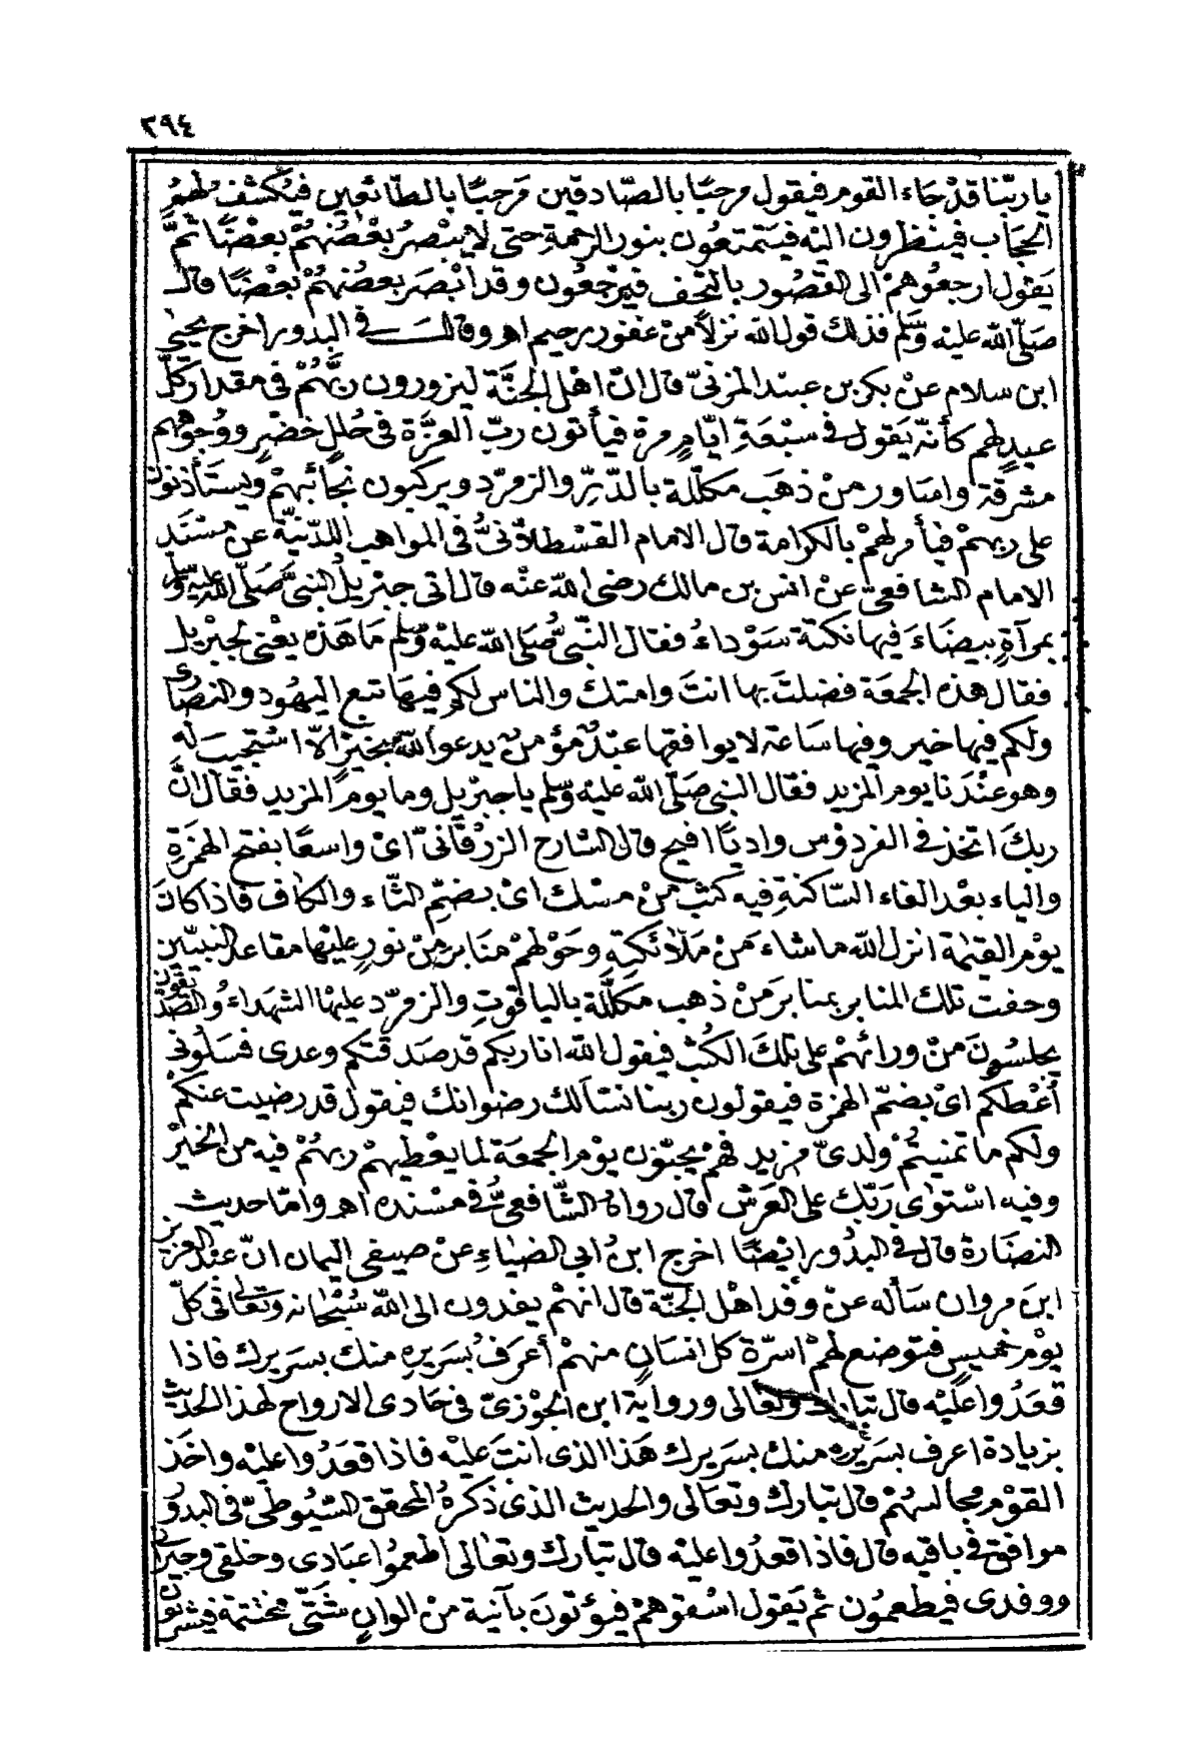 ٢٩٤
يا ربّنا قدْ جَاءَ القوم فيقول مرحبًا بالصّادقين مَرحبًا بالطّائعين فيُكْشَفُ لهمُ
الحجَاب فينظرون اليْه فيتمتعُون بنور الرحمة حتى لا يبْصرُ بعْضُهُمْ بعْضًا ثمَّ
يَقول ارجعُوهمْ الى القصُور بالتحف فيرْجعُون وقد ابْصَر بعضُهُمْ بعْضًا قال
صَلّى الله عليه وَسَلم فذلك قول الله نزلاً منْ غفور رحيم اهـ وقال في البدور اخرج يحيى
ابن سلام عنْ بكر بن عبْد المزنىّ قال انّ اهْل الجنَّة ليزورون ربَّهُمْ في مقدار كلّ
عيدٍ لهم كأنّه يَقول في سبْعَةِ ايّامٍ مرة فيأتون ربّ العزَّة في حُلَلٍ خضْرٍ ووُجوههم
مشرقة واساور منْ ذهَب مكلّلة بالدّرِّ والزمرّد ويركبون نجائبهمْ ويستأذنون
على ربهمْ فيأمر لهمْ بالكرامة قال الامام القسْطلاّنىُّ في المواهب اللدّنيّة عن مسْنَد
الامام الشافعىّ عنْ انس بن مالك رضى الله عنْه قال اتى جبْريلُ النبىَّ صَلّى الله عليه وسلم
بمرآةٍ بيضَاءَ فيها نكتة سَوْداءُ فقال النّبىُّ صَلى الله عليْه وسّلم مَا هَذه يعْنى لجبْريل
فقال هذه الجمعَة فضلتَ بها انتَ وامتك والناس لكم فيهَا تبع اليهُود والنصَارى
ولكم فيها خير وفيها سَاعة لا يوافقها عبْدٌ مؤمن يدعو الله بخيْرٍ الاّ اسْتجيبَ له
وهو عنْدَنا يوم المزيد فقال النبى صَلّى الله عليْه وسّلم يا جبْريل وما يومُ المزيد فقال انَّ
ربكَ اتخذ في الفردوْس واديًا افيح قال الشارح الزرْقانىّ اىْ واسعًا بفتح الهمْزَةِ
والياء بعْد الفاء السّاكنةِ فيه كثب منْ مسْك اىْ بضمّ الثّاء والكاف فاذا كانَ
يوْم القيمَة انزل الله ما شاء منْ مَلاَئكته وحَوْلهمْ منَابر منْ نورٍ عليْها مقاعد النبيّين
وحفت تلك المنابر بمنابرَ منْ ذهب مكَلَّلَة بالياقوتِ والزمرّد عليْها الشهدَاءُ والصّدّيقون
يجلسُونَ منْ ورائهمْ على تلكَ الكُثب فيقول الله انا ربكم قد صدقتكم وعدى فسَلُونى
أُعْطكم اىْ بضمّ الهمزة فيقولون ربنا نسْألك رضوانك فيقول قد رضيت عنكمْ
ولكم ما تمنيتُمْ ولدىّ مزيد فهمْ يحبّون يوْم الجمعَة لما يعْطيهمْ ربهُمْ فيه من الخيْر
وفيه اسْتوٰى رَبّك على العَرْش قال رواهُ الشّافعىُّ في مسْنده اهـ وامّا حديث
النضَارة قال في البدُور ايْضًا اخرج ابنُ ابى الضيَاءِ عنْ صيفى اليمان انّ عبْد العزيز
ابنَ مروان سَأله عنْ وَفد اهْل الجنّة قال انهمْ يفدون الى الله سُبْحانه وتعالى في كلّ
يوْم خميسٍ فتوضع لهمْ اسرّة كل انسَانٍ منهمْ أعرَف بسَريرهِ منك بسَريرك فاذا
قعَدُوا عليْه قال تبارك وتعالى ورواية ابن الجوْزىّ في حَادى الارواح لهذ الحديث
بزيادة اعرف بسَريره منك بسَريرك هَذا الذى انتَ عليْه فاذا قعَدُوا عليه واخَذ
القوْم مجالسهُمْ قال تبارك وتعَالى والحديث الذى ذكرهُ المحقق السّيُوطىّ في البدُو
موافق في باقيه قال فاذا قعدُوا عليْه قال تبارك وتعالى أطعمُوا عبَادى وخلقى وجيرانى
ووفدى فيطعمُون ثم يَقول اسْقوهمْ فيؤتونَ بآنية منْ الوانٍ شَتّى مختتمة فيشربون